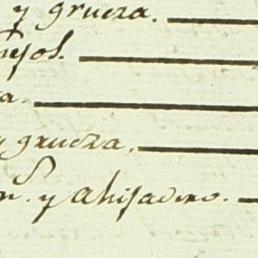 y grueza.
a.
y grueza.
y ahijadero.